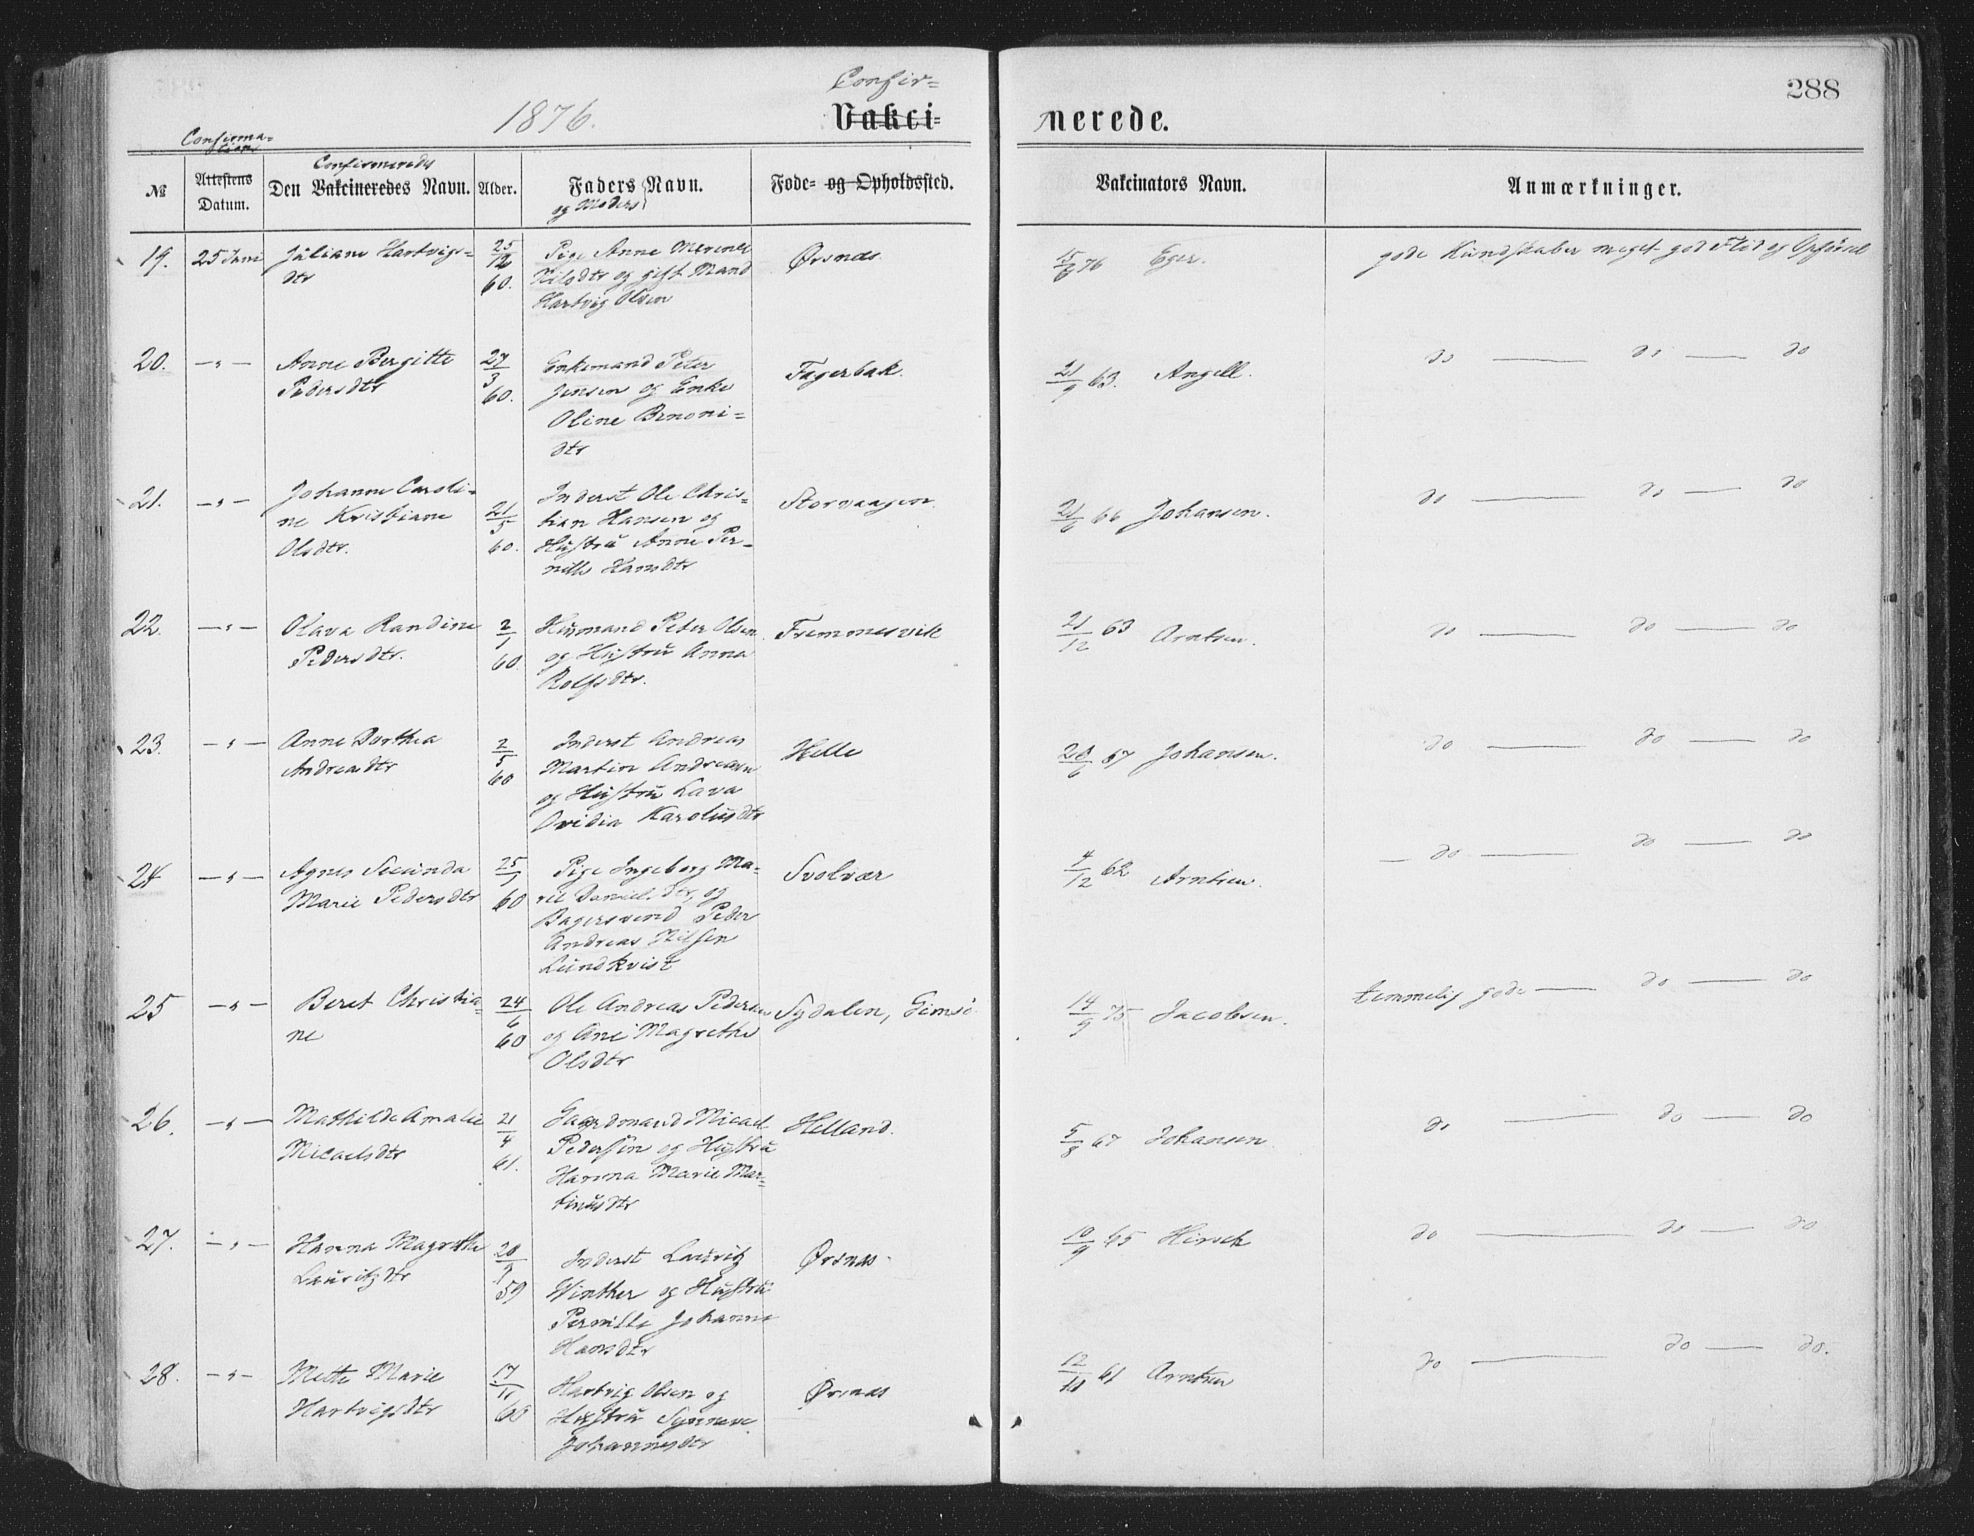 288
1876.
Confir=
Vakci=
nerede.
Confirma-
tions
Confirmeredes
№
Attestens
Datum.
Den Vakcineredes Navn.
Alder.
Faders Navn.
og Moders
Føde- og Opholdssted.
Vakcinators Navn.
Anmærkninger.
19. 25 Juni Juliane Hartvigs= 25/12 Pige Anne Ørsnæs 15/6 76 Eger. gode Kundskaber meget god Flid og Opførsel
dtr 60. Nilsdtr og gift Mand
Hartvig Olsen
20. —"— Anne Bergitte 27/3 Enkemand Peter Fagerbak. 21/9 63. Angell. do — do — do
Pedersdtr 60. Jensen og Enke
Oline Benoni=
dtr
21. —"— Johanne Caroli= 21/5 Inderst Ole Chris= Storvaagen 21/6 66 Johansen. do — do — do
ne Kristiane 60. tian Hansen og
Olsdtr. Hustru Anne Per=
nille Hansdtr
22. —"— Olava Randine 2/1 Husmand Peter Olsen Fremmesvik 21/12 63 Arntsen. do — do — do
Pedersdtr. 60 og Hustru Anna
Rolfsdtr.
23. —"— Anne Dorthea 2/5 Inderst Andreas Helle 28/6 67 Johansen. do — do — do
Andreasdtr 60 Martin Andreasen
og Hustru Lava
Ovidia Karolusdtr
24 —"— Agnes Secunda 25/1 Pige Ingeborg Ma- Svolvær 4/12 62 Arntsen. — do — do — do
Marie Pedersdtr 60 rie Danielsdtr, og
Bagersvend Peder
Andreas Nilsen
Lundkvist
25 —"— Beret Christia- 24/6 Ole Andreas Pedersen Sydalen, Gimsø 14/9 75 Jacobsen. temmelig gode — do — do
ne 60 og Ane Magrethe
Olsdtr
26. —"— Mathilde Amalie 21/4 Gaardmand Micael Helland. 5/8 67 Johansen. do — do — do
Micaelsdtr 61. Pedersen og Hustru
Hanna Marie Mar=
tinusdtr
27. —"— Hanna Magrethe 20/9 Inderst Lauritz Ørsnæs 10/9 65 Hirsch do — do — do
Lauritzdtr 59 Winther og Hustru
Pernille Johanne
Hansdtr
28. —"— Mette Marie 17/11 Hartvig Olsen og Ørsnæs 12/10 61 Arntsen do — do — do.
Hartvigsdtr 60 Hustru Synneve
Johannesdtr